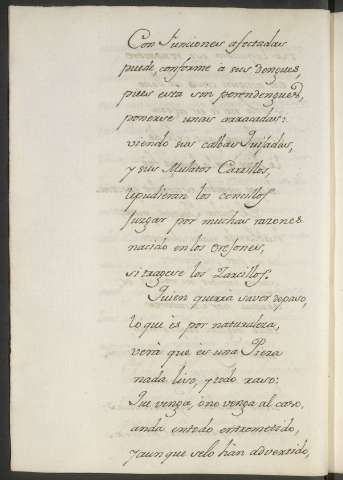 Con funciones afectadas
puede, conforme a sus dengues,
pues esta sin perendengues,
ponerse unas arracadas:
viendo sus calbas quijadas,
y sus Mulatos Carrillos,
pudieran los concillos
Juzgar por muchas razones
nacido en los Orejones,
si tragese los Zarcillos.
Quien querrá saver depaso,
lo que és por naturaleza,
verá que és una Pieza
nada liso, y todo raso:
Que venga, ó no venga al caso,
anda entodo entrometido,
y aun que selo hán advertido,